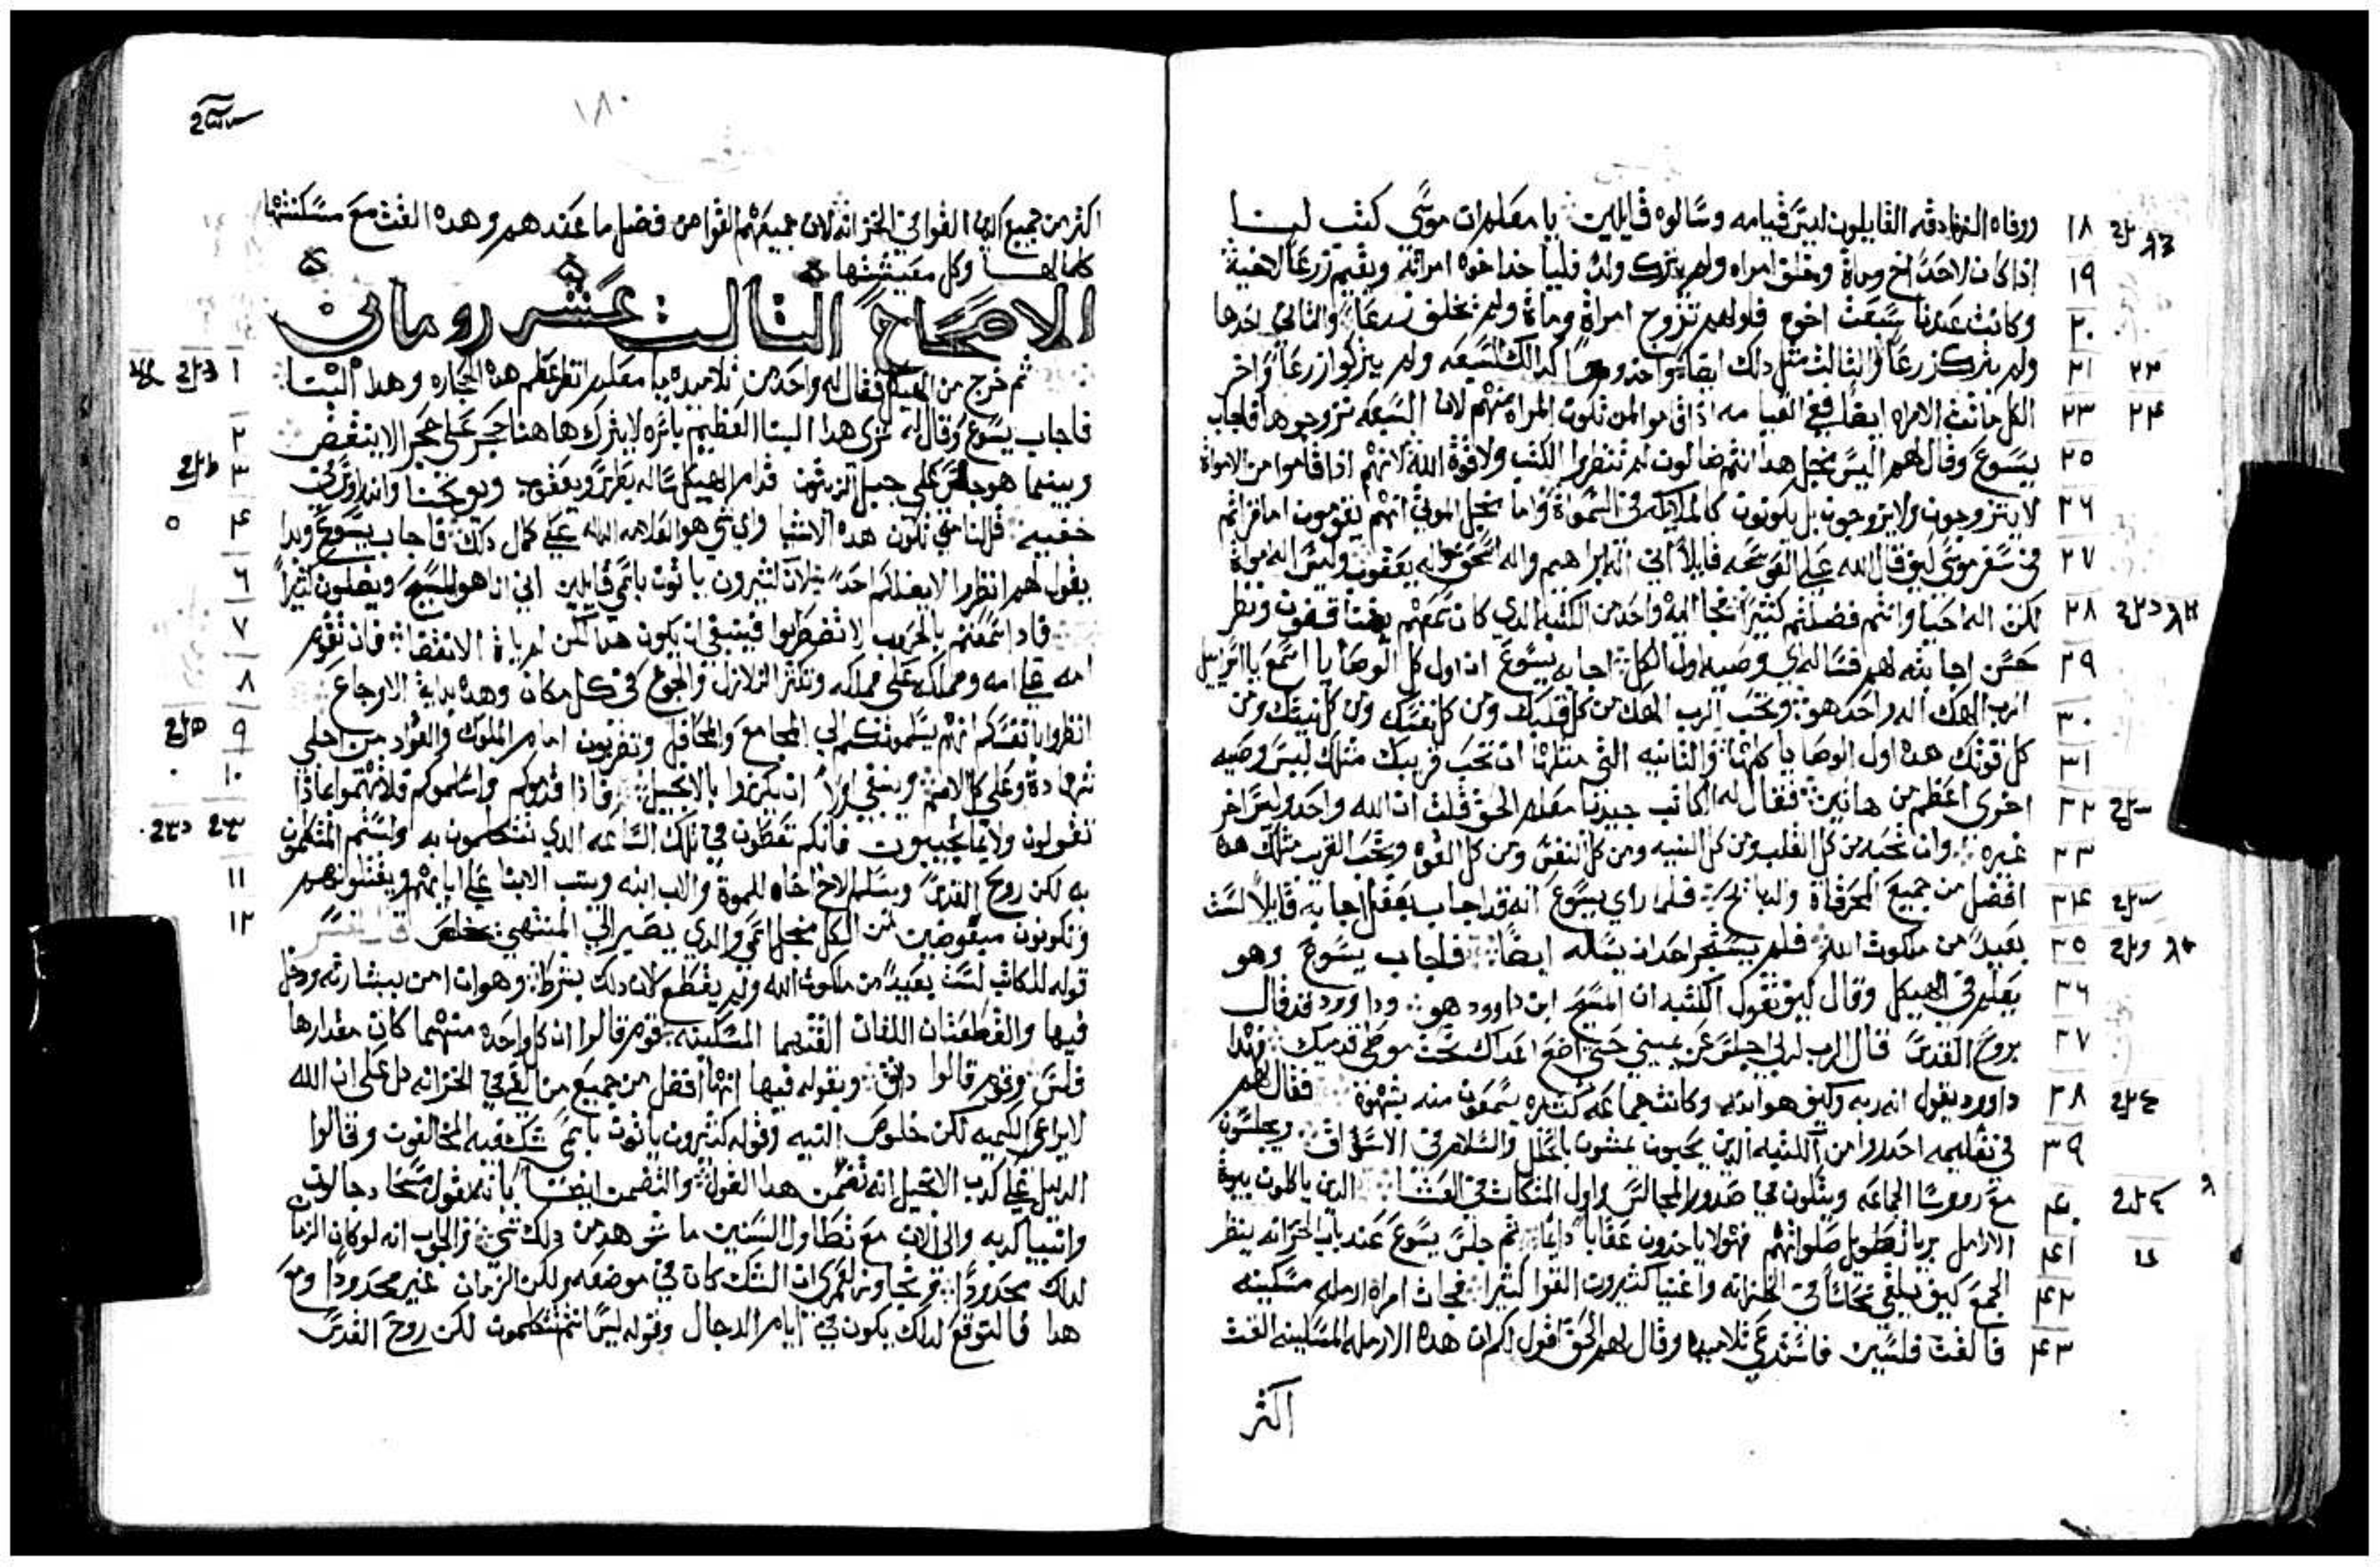 ووفاه الزنادقه القايلون ليس قيامه وسالوه قايلين يا معلم ان موسى كتب لنا
١٨
اذا كان لاحد اخ ومات وخلف امراه ولم يترك ولد فلياخذ اخوه امراته ويقيم زرعاً لاخيه
١٩
وكانت عندنا سبعت اخوه فاولهم تزوج امراة ومات ولم يخلف زرعاً والثاني اخدها
٢٠
ولم يترك زرعاً والثالث مثل دلك ايضاً واخدوها كدالك السبعه ولم يتركوا زرعاً واخر
٢١ ٢٢
الكل ماتت الامراه ايضا ففي القيامه اذا قاموا لمن تكون المراه منهم لان السبعه تزوجوها فاجاب
٢٣ ٢٤
يسوع وقال لهم اليس من اجل هدا انتم ضالون لم تنظروا الكتب ولا قوة الله لانهم ادا قاموا من الاموات
٢٥
لا يتزوجون ولا يزوجون بل يكونون كالملايكه في السموات واما من اجل الموتى انهم يقومون اما قراتم
٢٦
في سفر موسى كيف قال الله على العوسجه قايلاً اني اله ابراهيم واله اسحق واله يعقوب وليس اله موتى
٢٧
لكن اله احيا وانتم فضللتم كثيراً فجا اليه واحد من الكتبه الدي كان سمعهم يفتشون ونظر
٢٨
حسن اجابته لهم فساله اي وصيه اول الكل اجابه يسوع ان اول كل الوصايا اسمع يا اسراييل
٢٩
الرب الهك اله واحد هو وتحب الرب الهك من كل قلبك ومن كل نفسك ومن كل نيتك ومن
٣٠
كل قوتك هده اول الوصايا كلها والثانيه التي مثلها ان تحب قريبك مثلك ليس وصيه
٣١
اخرى اعظم من هاتين فقال له الكاتب جيد يا معلم الحق قلت ان الله واحد وليس اخر
٣٢
غيره وان تحبه من كل القلب ومن كل النيه ومن كل النفس ومن كل القوه وتحب القريب مثلك هده
٣٣
افضل من جميع المحرقات والدبايح فلما راى يسوع انه قد اجاب بعقل اجابه قايلاً لست
٣٤
بعيداً من ملكوت الله فلم يستجر احد ان يساله ايضاً فاجاب يسوع وهو
٣٥
يعلم في الهيكل وقال كيف تقول الكتبه ان المسيح ابن داوود هو وداوود قد قال
٣٦
بروح القدس قال الرب لربي اجلس عن يميني حتى اضع اعداك تحت موطى قدميك فهدا
٣٧
داوود يقول انه ربه وكيف هو ابنه وكانت جماعه كثيره يسمعون منه بشهوة فقال لهم
٣٨
في تعليمه احدروا من الكتبه الدين يحبون يمشون بالحلل والسلام في الاسواق ويجلسون
٣٩
مع رووسا الجماعه ويتكون في صدور المجالس واول المتكات في العشا الدين ياكلون بيوت
٤٠
الارامل بريا تطويل صلواتهم فهولا ياخدون عقاباً دايماً ثم جلس يسوع عند باب الخزانه ينظر
٤١
الجمع كيف يلقي نحاساً في الخزانه واغنيا كثيرون القوا كثيرا فجات امراه ارمله مسكينه
٤٢
فالقت فلسين فاستدعى تلاميده وقال لهم الحق اقول لكم ان هده الارمله المسكينه القت
٤٣
اكثر
١٨٠
اكثر من جميع الدين القوا في الخزانه لان جميعهم القوا من فضل ما عندهم وهده القت مع مسكنتها
كلما لها وكل معيشتها
الاصحاح الثالث عشر روماني
ثم خرج من الهيكل فقال له واحد من تلاميده يا معلم انظر عظم هده الحجاره وهدا البنا
١
فاجاب يسوع وقال له ترى هدا البنا العظيم باثره لا يترك هاهنا حجر على حجر الا ينتقض
٢
وبينما هو جالس على جبل الزيتون قدام الهيكل ساله بطرس ويعقوب ويوحنا واندراوس
٣
خفيه قل لنا متى تكون هده الاشيا واي شي هو العلامه الداله على كمال دلك فاجاب يسوع وبدا
٤ ٥
يقول لهم انظروا لا يضلكم احداً لان كثيرون ياتون باسمي قايلين اني انا هو المسيح ويضلون كثيراً
٦
فادا سمعتم بالحروب لا تضطربوا فينبغي ان يكون هدا لكن لم ياتي الانقضا فان تقوم
٧
امه على امه ومملكه على مملكه وتكثر الزلازل والجوع في كل مكان وهده بداية الاوجاع
٨
انظروا بانفسكم انهم يسلمونكم الى المجامع والمحافل وتضربون امام الملوك والقواد من اجلي
٩
شهادة وعلى كل الامم وينبغي اولاً ان يكرزوا بالانجيل فادا قدموكم واسلموكم فلا تهتموا بمادا
١٠
تقولون ولا بما تجيبون فانكم تعطون في تلك الساعه الدي تتكلمون به ولستم المتكلمون
به لكن روح القدس ويسلم الاخ اخاه للموت والاب ابنه ويتب الابنا على ابايهم ويقتلونهم
١١
وتكونون مبغوضين من الكل من اجل اسمي والدي يصبر الى المنتهى يخلص قال المفسر
١٢
قوله للكاتب لست بعيداً من ملكوت الله ولم يقطع لان دلك بشرط وهو ان امن ببشارته ودخل
فيها والقطعتان اللتان القتهما المسكينه قوم قالوا ان كل واحده منهما كان مقدارها
فلس وقوم قالوا دانق وبقوله فيها انها افضل من جميع من القى في الخزانه دل على ان الله
لا يراعي الكميه لكن خلوص النيه وقوله كثيرون ياتون باسمي شكك فيه المخالفون وقالوا
الدليل على كدب الانجيل انه تضمن هدا القول والتضمن ايضاً بانه يقول مسحا دجالون
وانبيا كدبه والى الان مع تطاول السنين ما شوهد من دلك شي والجواب انه لو كان الزمان
لداك محدوداً وتجاوز لعمري ان الشك كان في موضعه ولكن الزمان غير محدوداً ومع
هدا فالتوقع لداك يكون في ايام الدجال وقوله ليس انتم تتكلمون لكن روح القدس